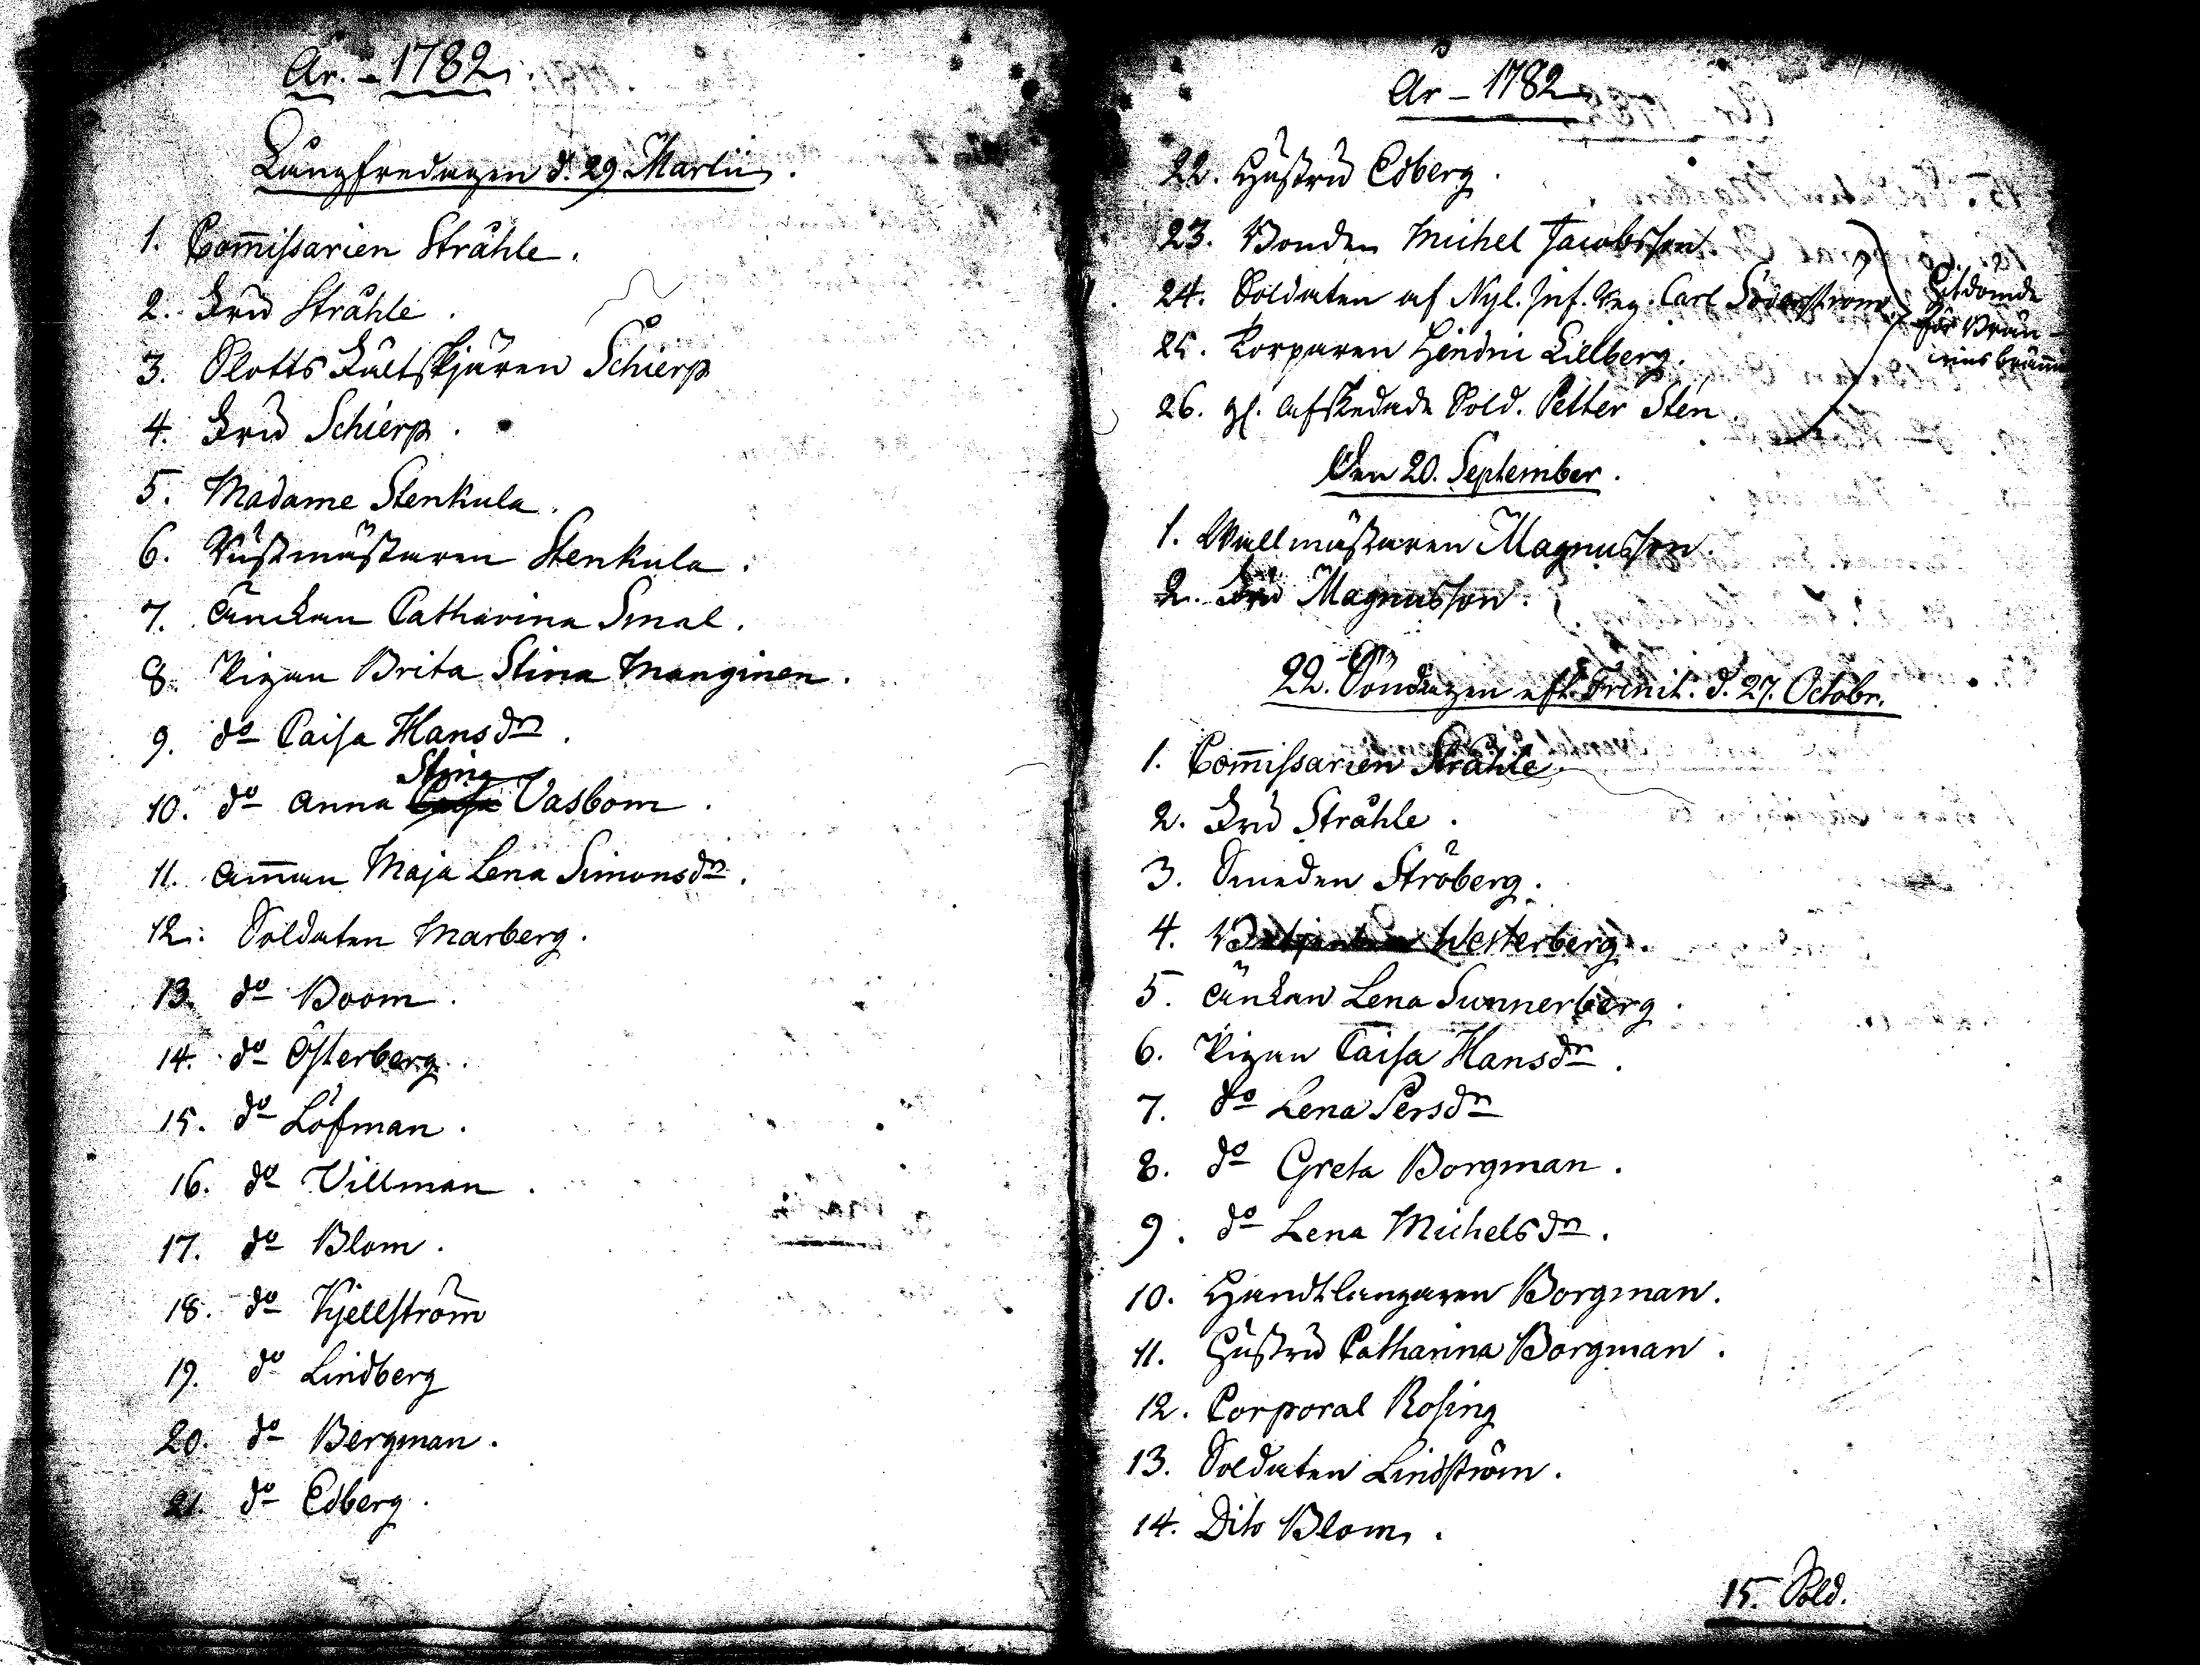 År. - 1782.
Långfredagen d. 29. Martii.
1. Com̄issarien Stråhle.
2. Fru Stråhle.
3. Slotts Fältskjären Schierp
4. Fru Schierp.
5. Madame Stenkula.
6. Rustmästaren Stenkula.
7. Änckan Catharina Smal.
8. Pigan Brita Stina Manginen.
9. do Caisa Hansdr.
10. do Anna Stina Vasbom.
11. Am̄an Maja Lena Simonsdr.
12. Soldaten Marberg.
13. do Boom.
14. do Österberg.
15. do Löfman.
16. do Villman.
17. do Blom.
18. do Kjellström
19. do Lindberg
20. do Bergman.
21. do Edberg.
År - 1782
22. Hustru Edberg.
23. Bonden Michel Jacobsson.
24. Soldaten af Nyl. Inf. Reg. Carl Söderström.
25. Torparen Hindric Lillberg.
26. afskedade Sold. Petter Sten.
för Brän-
vinsbrän̄
Den 20. September.
1. Wallmästaren Magnusson.
2. Fru Magnusson.
22. Söndagen eft. Trinit. d. 27. Octobr.
1. Com̄issarien Stråhle.
2. Fru Stråhle.
3. Smeden Ströberg.
4. Westerberg.
5. Änkan Lena Sunnerberg.
6. Pigan Caisa Hansdr.
7. do Lena Persdr
8. do Greta Borgman.
9. do Lena Michelsdr.
10. Handtlangaren Borgman.
11. Hustru Catharina Borgman.
12. Corporal Rosing
13. Soldaten Lindström.
14. Dito Blom.
15. Sold.